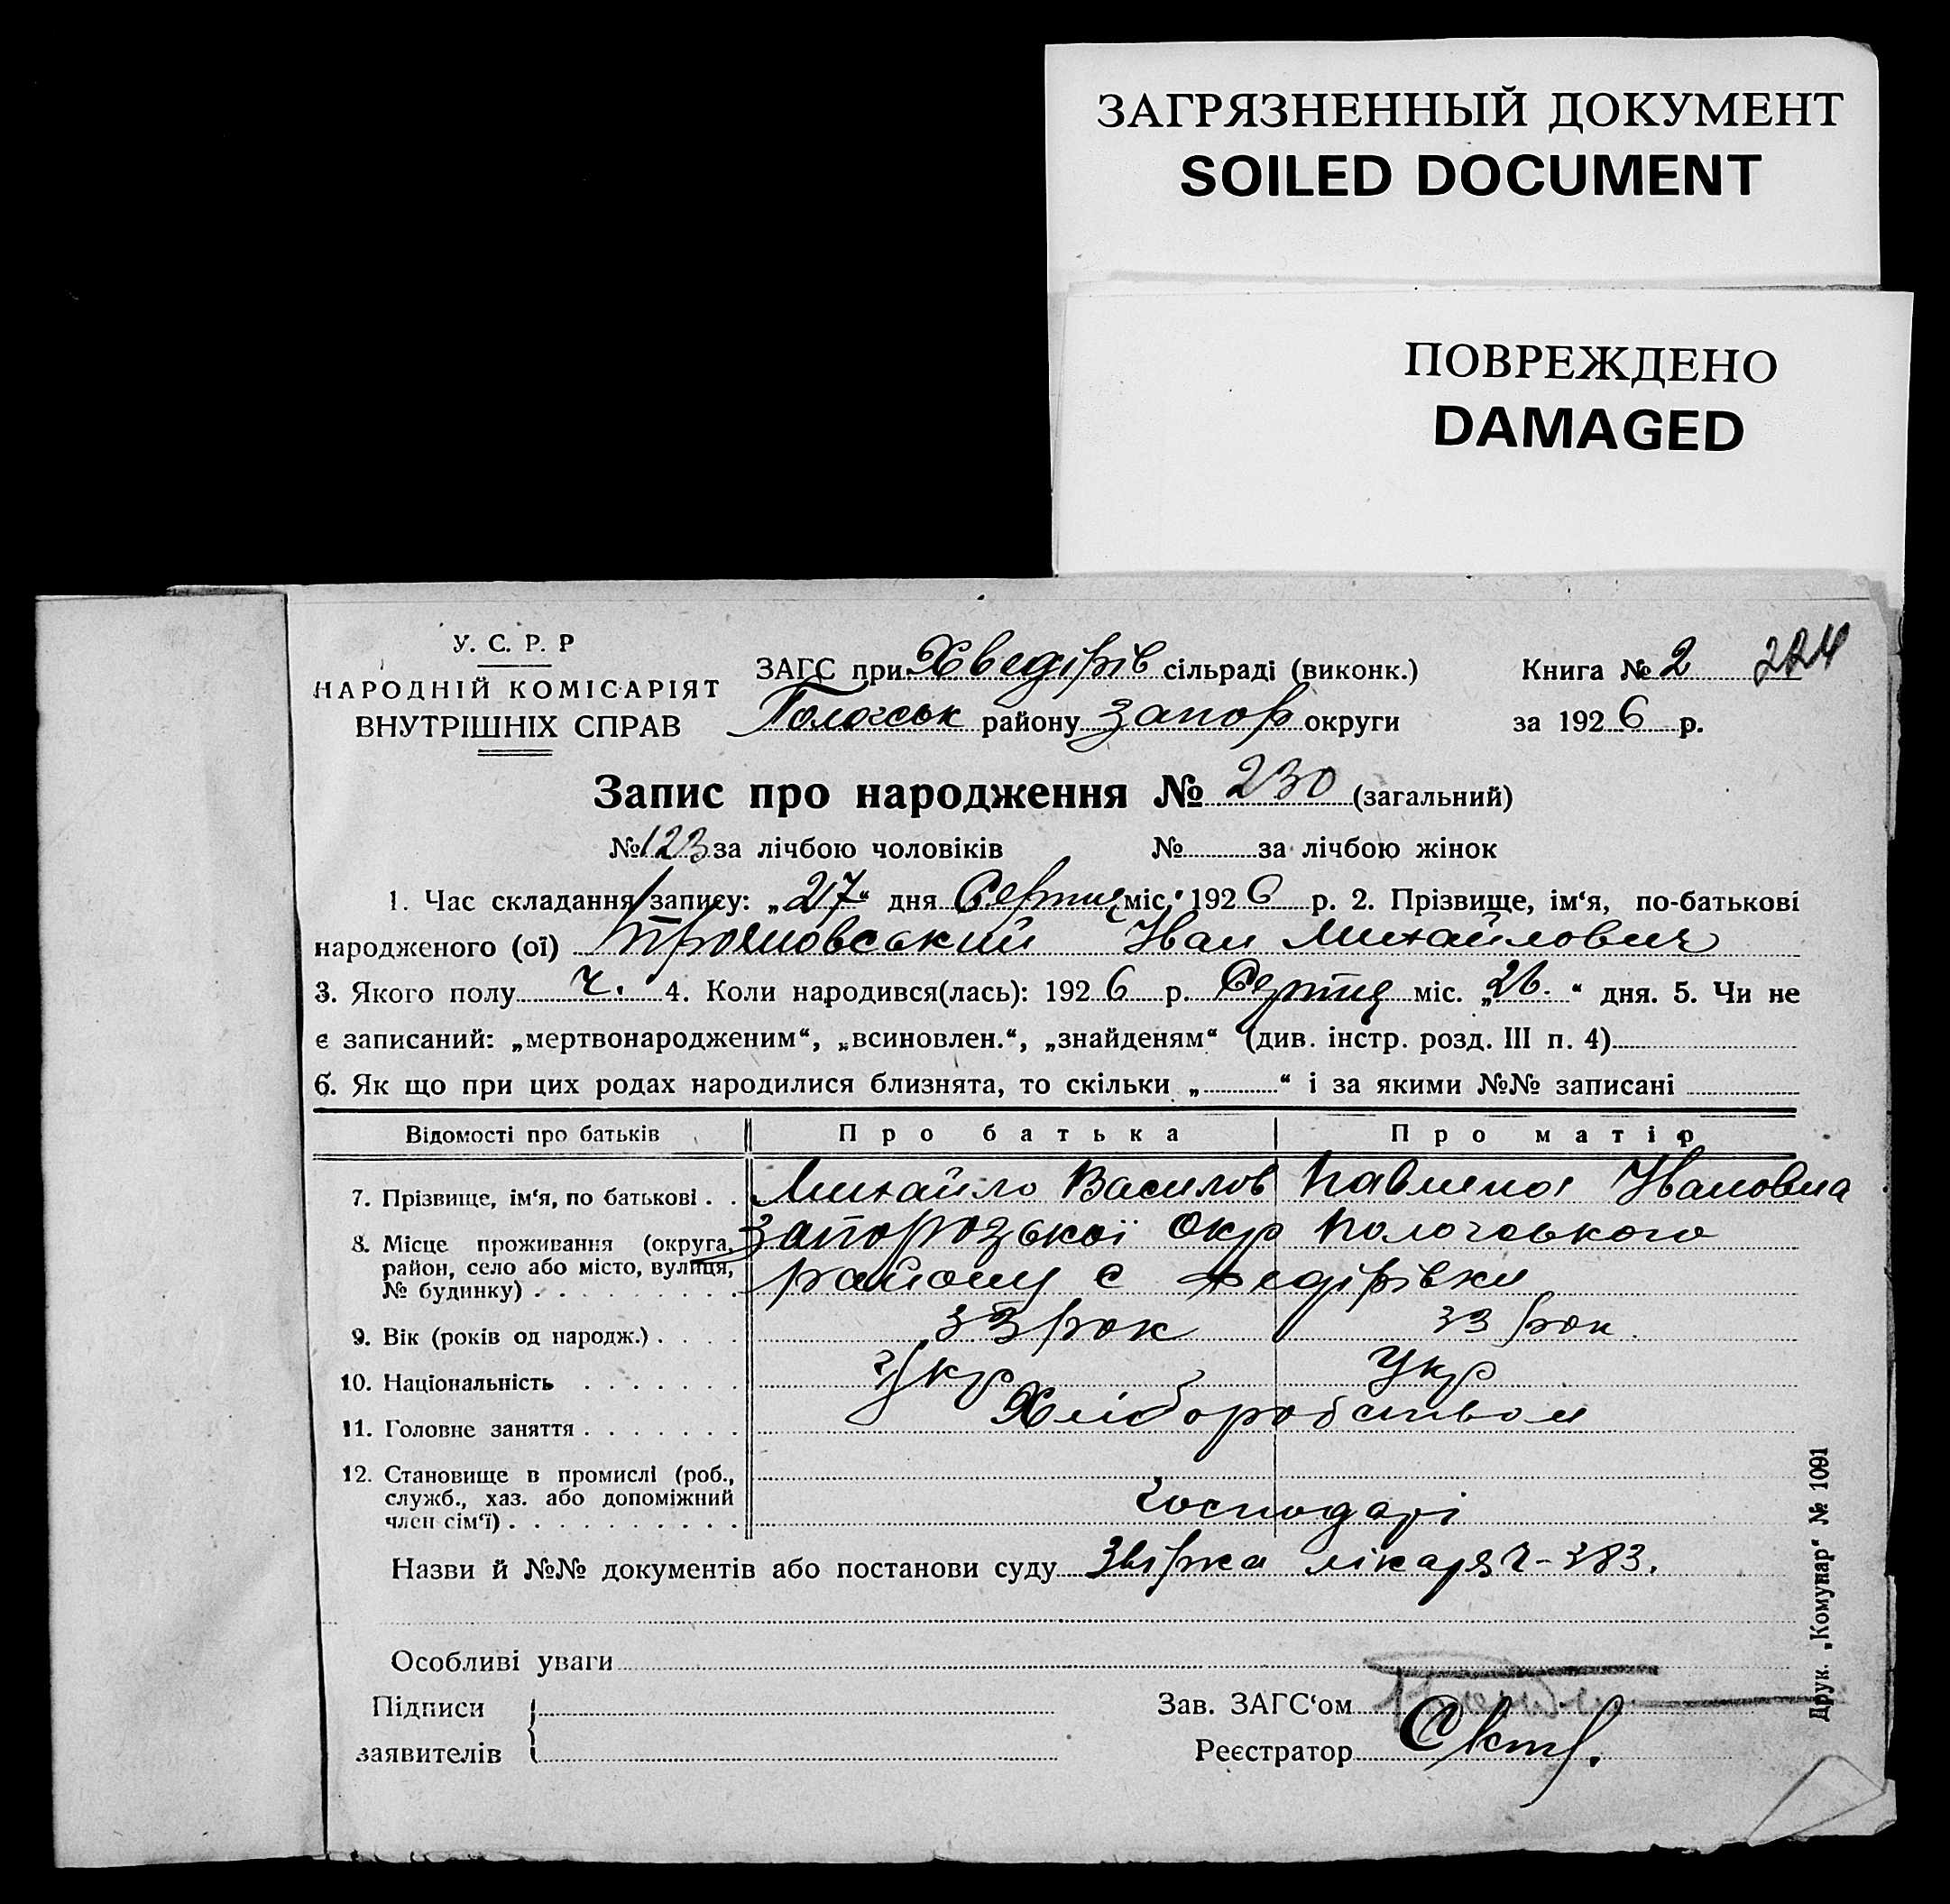 ЗАГРЯЗНЕННЫЙ ДОКУМЕНТ
SOILED DOCUMENT
ПОВРЕЖДЕНО
DAMAGED
У. С. Р. Р
НАРОДНІЙ КОМІСАРІЯТ
ВНУТРІШНІХ СПРАВ
ЗАГС при Хведірів сільраді (виконк.)
району запор округи
Книга № 2 224
за 1926 р.
Запис про народження № 230 (загальний)
№ 123 за лічбою чоловіків № за лічбою жінок
1. Час складання запису: „27“ дня міс. 1926 р. 2. Прізвище, ім‘я, по-батькові
народженого (ої) Трояновський Іван Михайлович
3. Якого полу ч. 4. Коли народився(лась): 1926 р. міс. „26.“ дня. 5. Чи не
є записаний: „мертвонародженим“, „всиновлен.“, „знайденям“ (див. інстр. розд. III п. 4)
6. Як що при цих родах народилися близнята, то скільки „ “ і за якими №№ записані
Відомості про батьків Про батька Про матір
7. Прізвище, ім‘я, по батькові . . Михайло Василов Павлина Івановна
8. Місце проживання (округа, Запорозької Окр Пологовського
район, село або місто, вулиця, району с Федірівки
№ будинку) . . . . . . . . .
9. Вік (років од народж.) . . . . 33 рок 33 рок.
10. Національність . . . . . . . Укр Укр
11. Головне заняття . . . . . . . Хліборобством
12. Становище в промислі (роб.,
служб., хаз. або допоміжний господарі
член сім‘ї) . . . . . . . . . .
Назви й №№ документів або постанови суду лікаря ч-383.
Особливі уваги
Підписи
заявителів
Зав. ЗАГС‘ом
Реєстратор
Друк. „Комунар“ № 1091